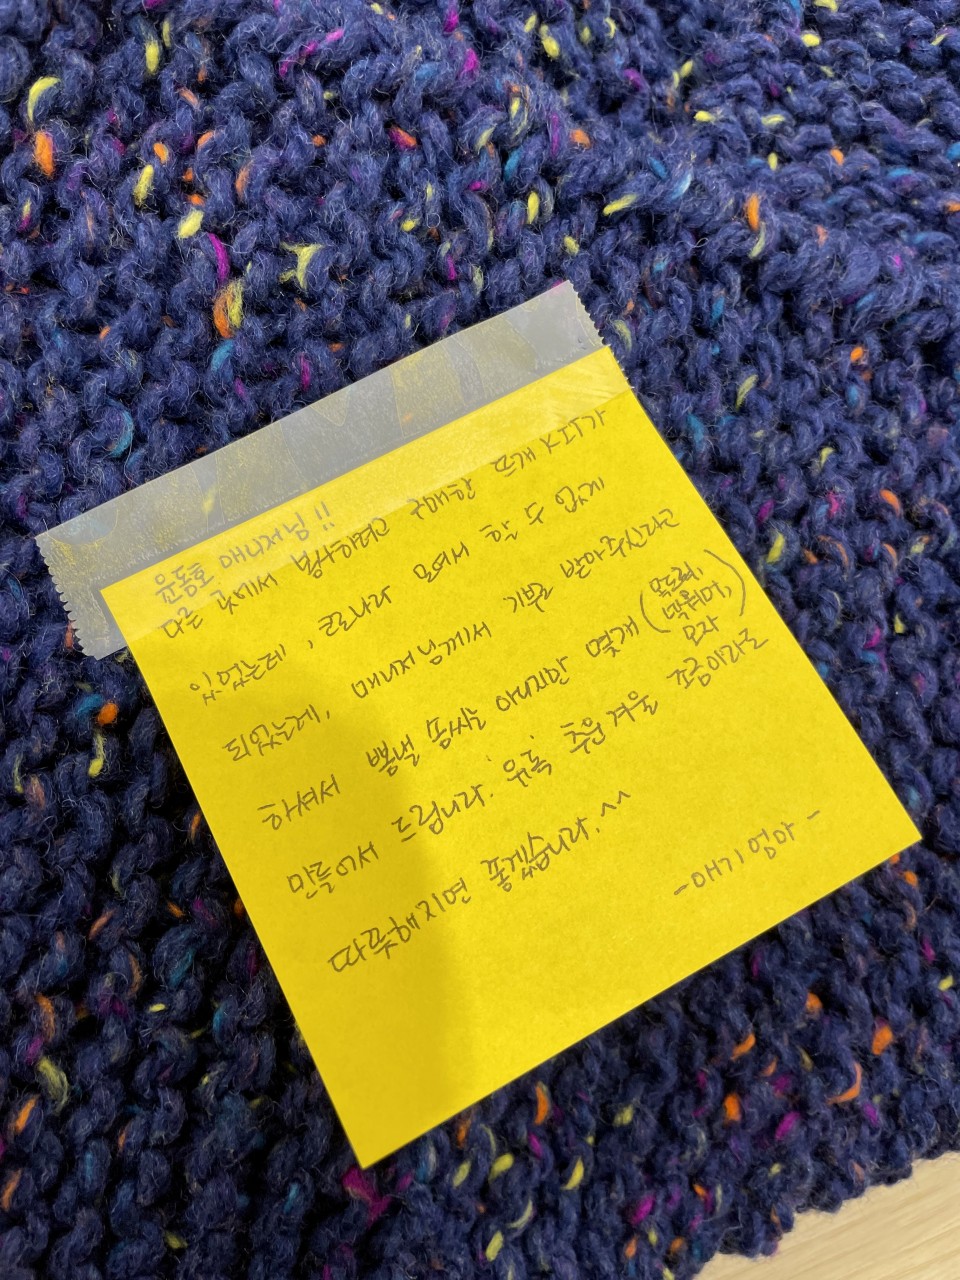 윤동호 매니저님!!
다른 곳에서 봉사하려고 구매한 뜨개 KIT가
있었는데, 코로나라 모여서 할 수 없게
되었는데, 매니저님께서 기부를 받아주신다고
하셔서 뽐낼 솜씨는 아니지만 몇개 (목도리, 넥워머, 모자)
만들어서 드립니다. 유독 추운 겨울 조금이라도
따뜻해지면 좋겠습니다.^^
-애기엄마-